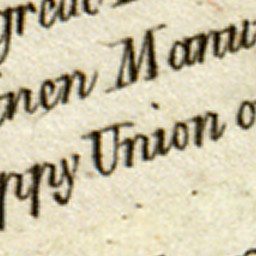 great
inen Manu
ppy Union o